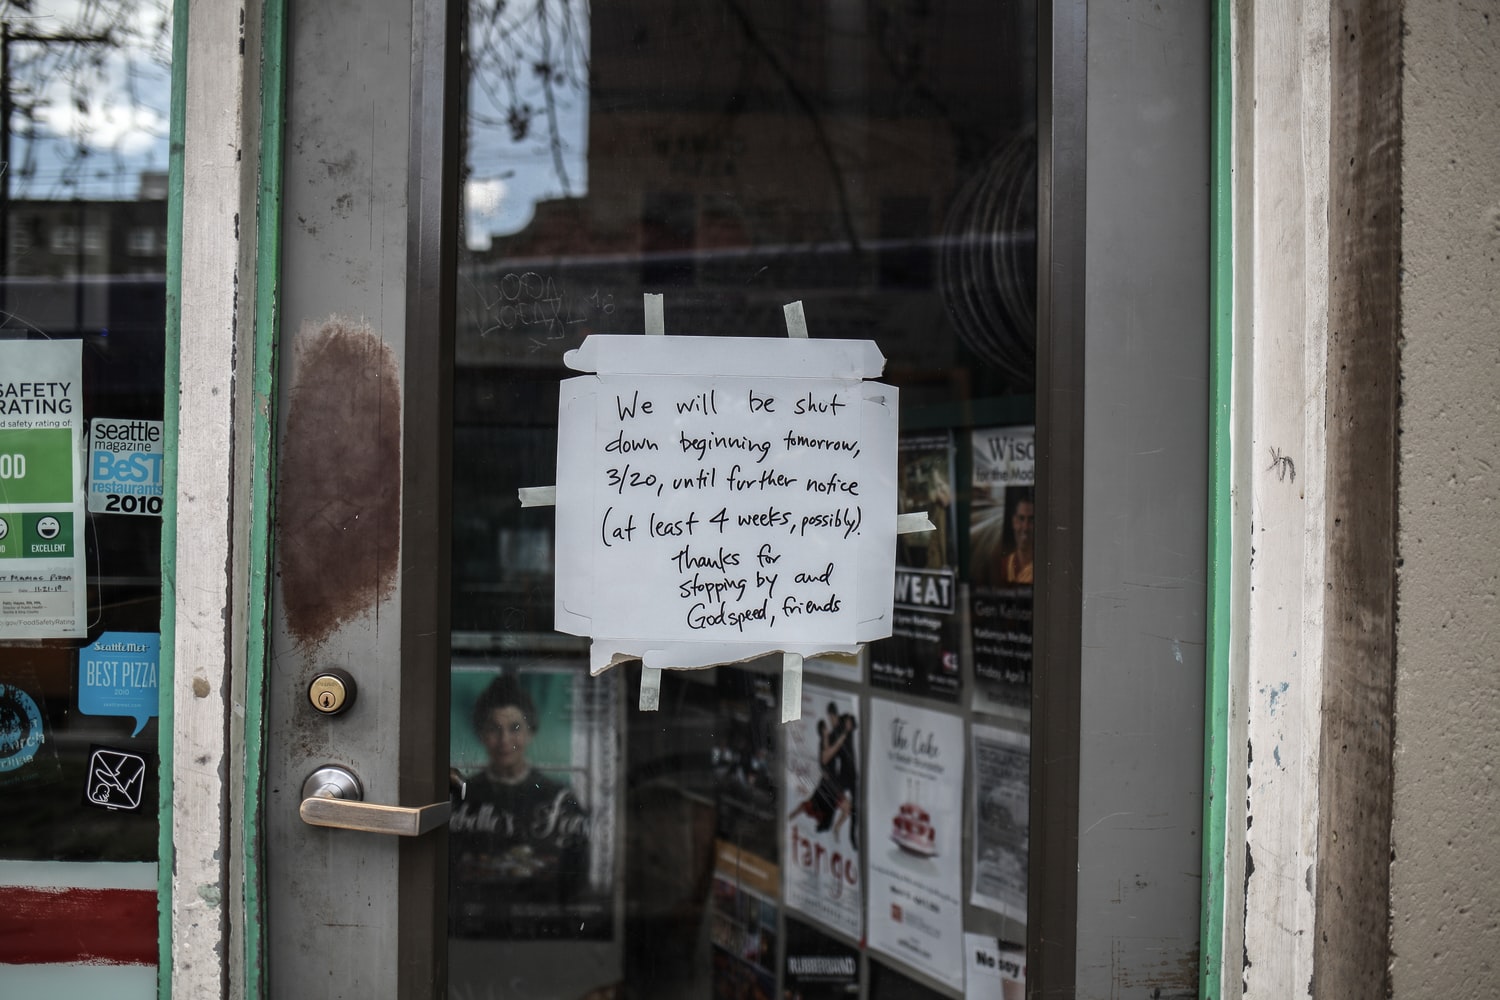 We will be shut
down beginning tomorrow,
3/20, until further notice
(at least 4 weeks, possibly).
Thanks for
stopping by and
Godspeed, friends
SAFETY
RATING
d safety rating of:
OD
EXCELLENT
11-21-19
gov/FoodSafetyRating
seattle
magazine
BeST
restaurants
2010
SeattleMet
BEST PIZZA
2010
Wisd
for the Mod
WEAT
Friday, April
The Cake
tango
RUBBERBAND
No soy